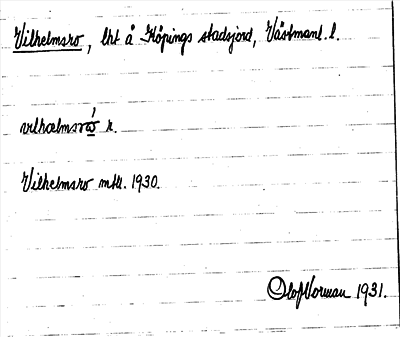 Vilhelmsro, lht å Köpings stadsjord, Västmanl. l.
vilhælmsrὼ r.
Vilhelmsro mtl. 1930.
Olof Norman 1931.